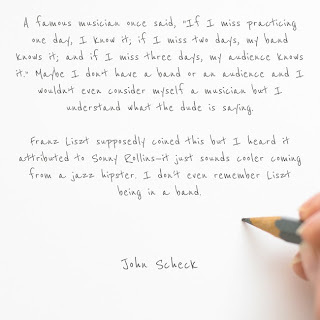 A famous musician once said, "If I miss practicing
one day, I know it; if I miss two days, my band
knows it; and if I miss three days, my audience knows
it." Maybe I dont have a band or an audience and I
wouldnt even consider myself a musician but I
understand what the dude is saying.
Franz Liszt supposedly coined this but I heard it
attributed to Sonny Rollins-it just sounds cooler coming
from a jazz hipster. I don't even remember Liszt
being in a band.
John Scheck